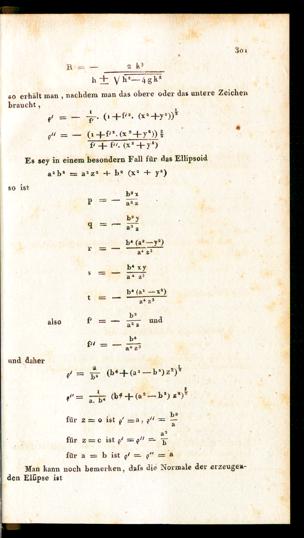 301
R = − 2 k² / h ± √h² − 4 g k²
so erhält man, nachdem man das obere oder das untere Zeichen
braucht,
ϱ′ = − 1/f′ . (1 + f′² . (x² + y²))^½
ϱ″ = − (1 + f′² . (x² + y²))^(3/2) / f′ + f″ . (x² + y²)
Es sey in einem besondern Fall für das Ellipsoid
a² b² = a² z² + b² (x² + y²)
so ist
p = − b² x / a² z
q = − b² y / a² z
r = − b⁴ (a² − y²) / a⁴ z³
s = − b⁴ x y / a⁴ z³
t = − b⁴ (a² − x²) / a⁴ z³
also f′ = − b² / a² z und
f″ = − b⁴ / a⁴ z³
und daher
ϱ′ = a / b² (b⁴ + (a² − b²) z²)^½
ϱ″ = 1 / a. b⁴ (b⁴ + (a² − b²) z²)^(3/2)
für z = o ist ϱ′ = a, ϱ″ = b² / a
für z = c ist ϱ′ = ϱ″ = a² / b
für a = b ist ϱ′ = ϱ″ = a
Man kann noch bemerken, daſs die Normale der erzeugen-
den Ellipse ist